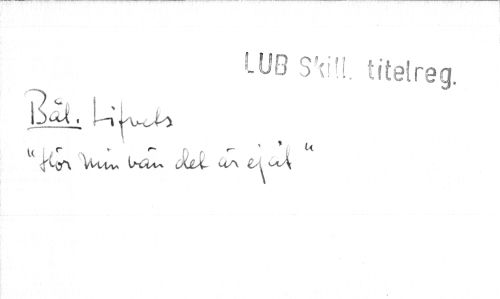 LUB Skill. titelreg.
Bål. Lifvets
"Hör min vän det är ej åt"